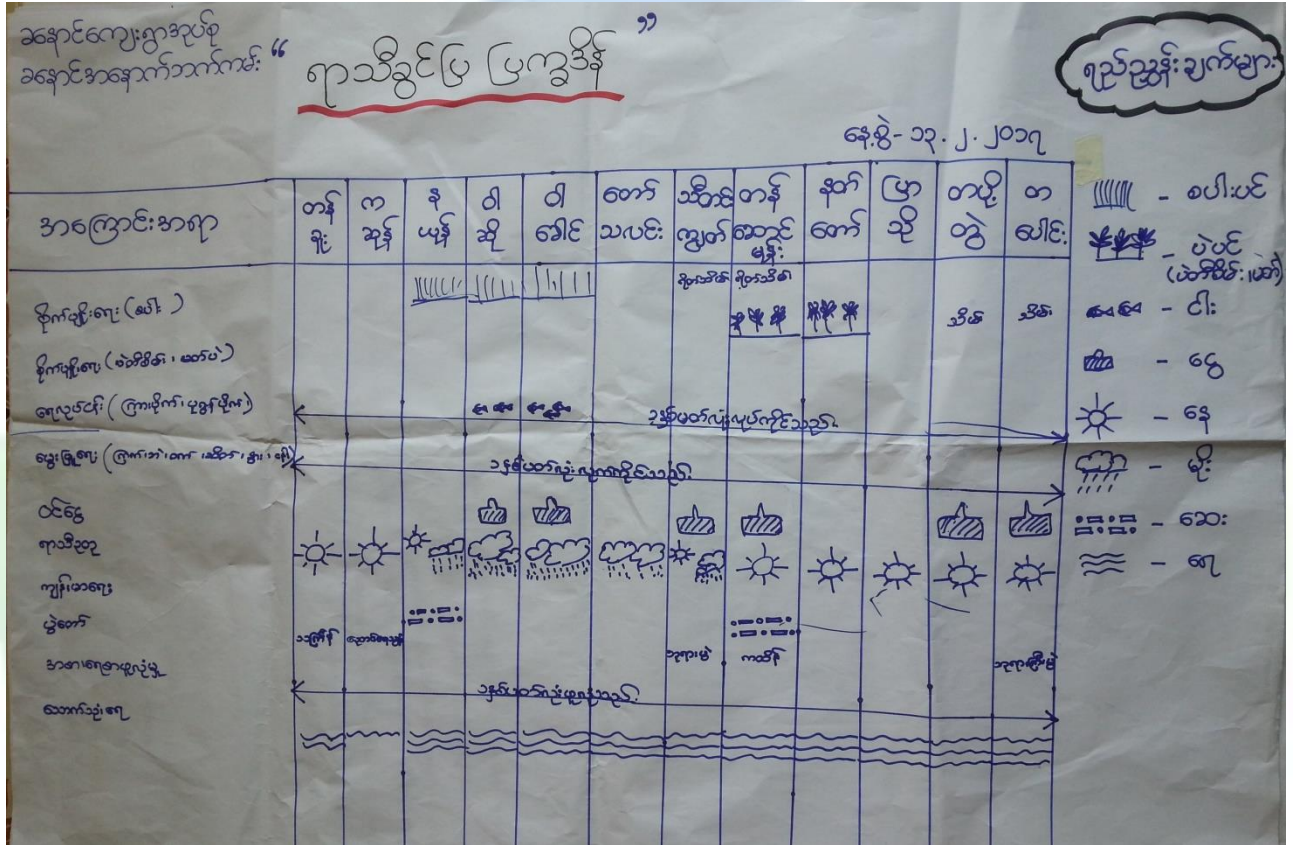 ခနောင်ကျေးရွာအုပ်စု
ခနောင်အနောက်ဘက်ကမ်း
“ ရာသီခွင်ပြ ပြက္ခဒိန် ”
ရည်ညွှန်းချက်များ
နေ့စွဲ - ၁၃.၂.၂၀၁၇
အကြောင်းအရာ
တန်ခူး
ကဆုန်
နယုန်
ဝါဆို
ဝါခေါင်
တော်သလင်း
သီတင်းကျွတ်
တန်ဆောင်မုန်း
နတ်တော်
ပြာသို
တပို့တွဲ
တပေါင်း
စိုက်ပျိုးရေး (စပါး)
ရိတ်သိမ်း ရိတ်သိမ်း
သိမ်း သိမ်း
စိုက်ပျိုးရေး (ပဲတီစိမ်း၊ မတ်ပဲ)
ရေလုပ်ငန်း
၁နှစ်ပတ်လုံးလုပ်ကိုင်သည်။
မွေးမြူရေး
၁နှစ်ပတ်လုံးလုပ်ကိုင်သည်။
ဝင်ငွေ
ရာသီဥတု
ကျန်းမာရေး
ပွဲတော်
သင်္ကြန်
ညောင်ရေသွန်း
ဘုရားပွဲ
ကထိန်
ဘုရားပွဲ
အစားရေစာဖူလုံမှု
၁နှစ်ပတ်လုံးဖူလုံသည်။
သောက်သုံးရေ
- စပါးပင်
- ပဲပင်
(ပဲတီစိမ်း၊ မတ်)
- ငါး
- ငွေ
- နေ
- မိုး
- ဆေး
- ရေ